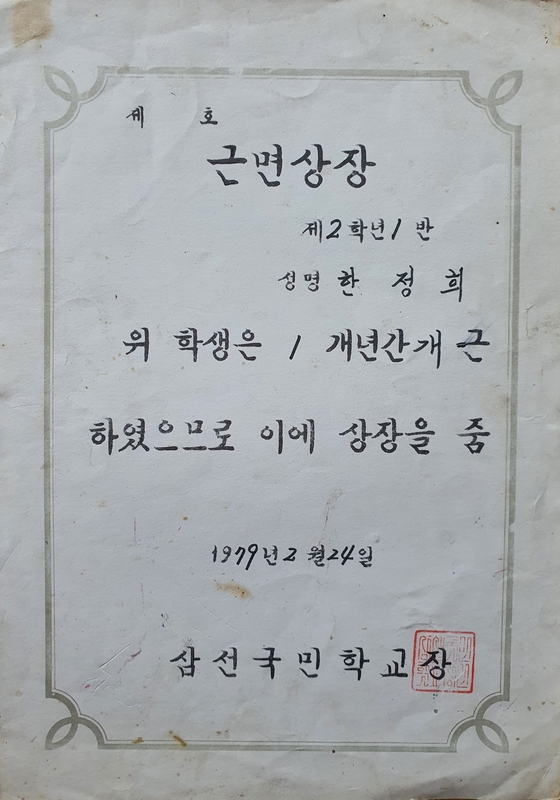 제 호
근면상장
제2학년 1반
성명 한 정 희
위 학생은 1 개년간개근
하였으므로 이에 상장을 줌
1979년 2월24일
삼선국민학교장